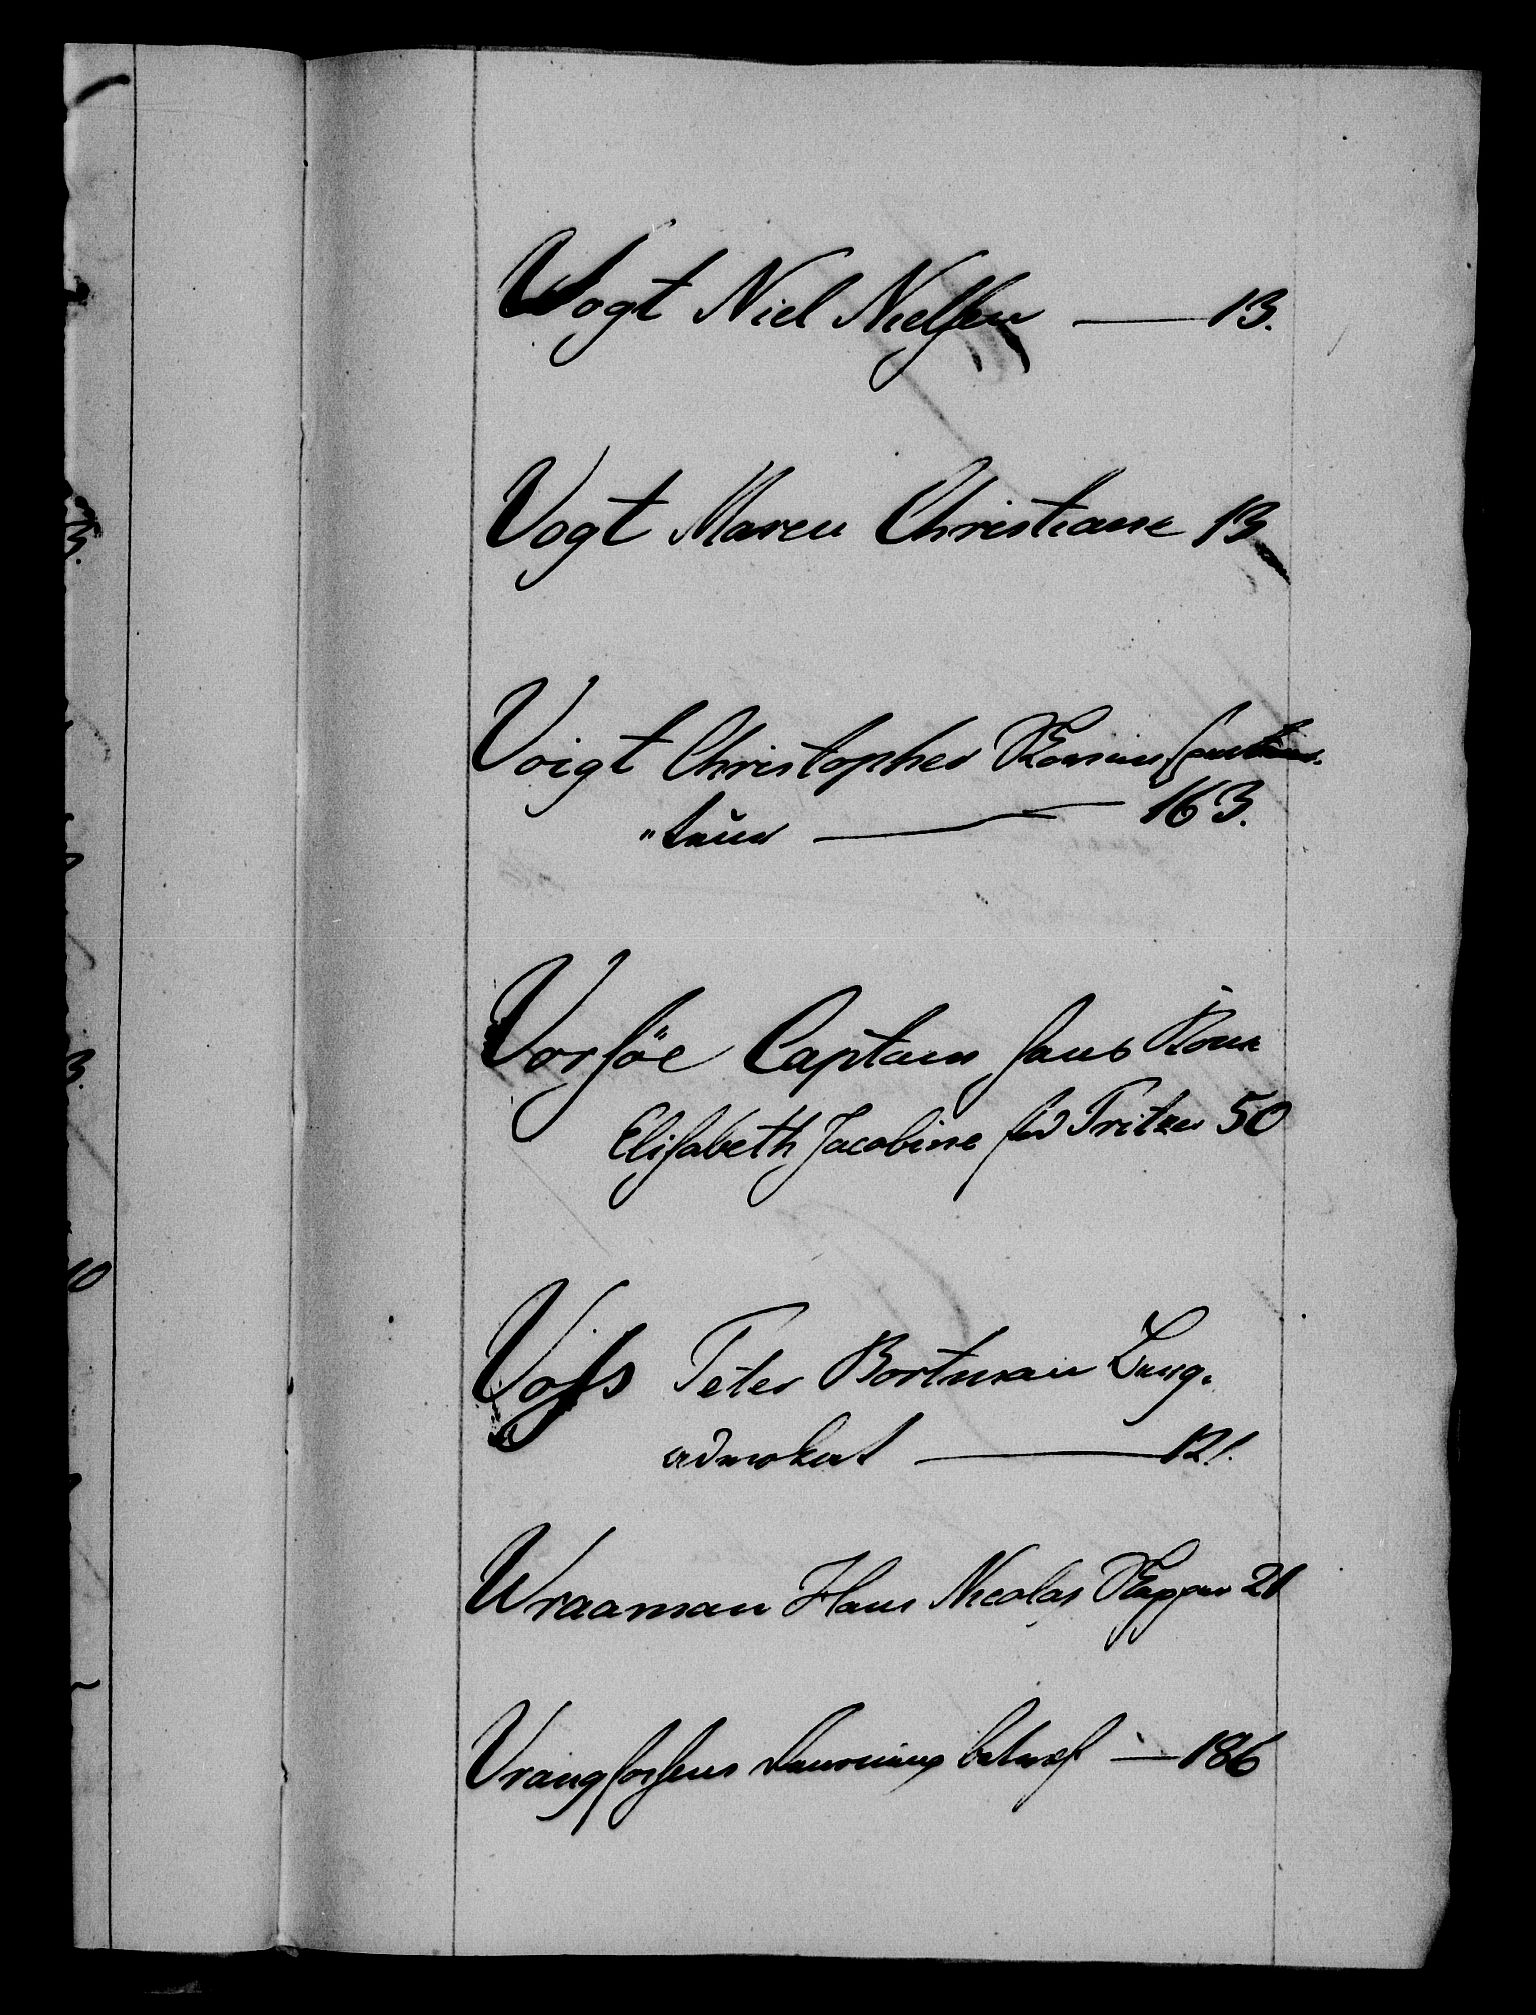 Vogt Niel Nielsen — 13.
Vogt Maren Christiane 13
Voigt Christopher
"teur — 163.
Vorsöe Captain hans Kone
Elisabeth Jacobine fød Fritzer 50
Voss Peter Bortman Zung.
advokat — 121.
Wraaman Hans Nicolas Skipper 21
Vrangfossens — 186